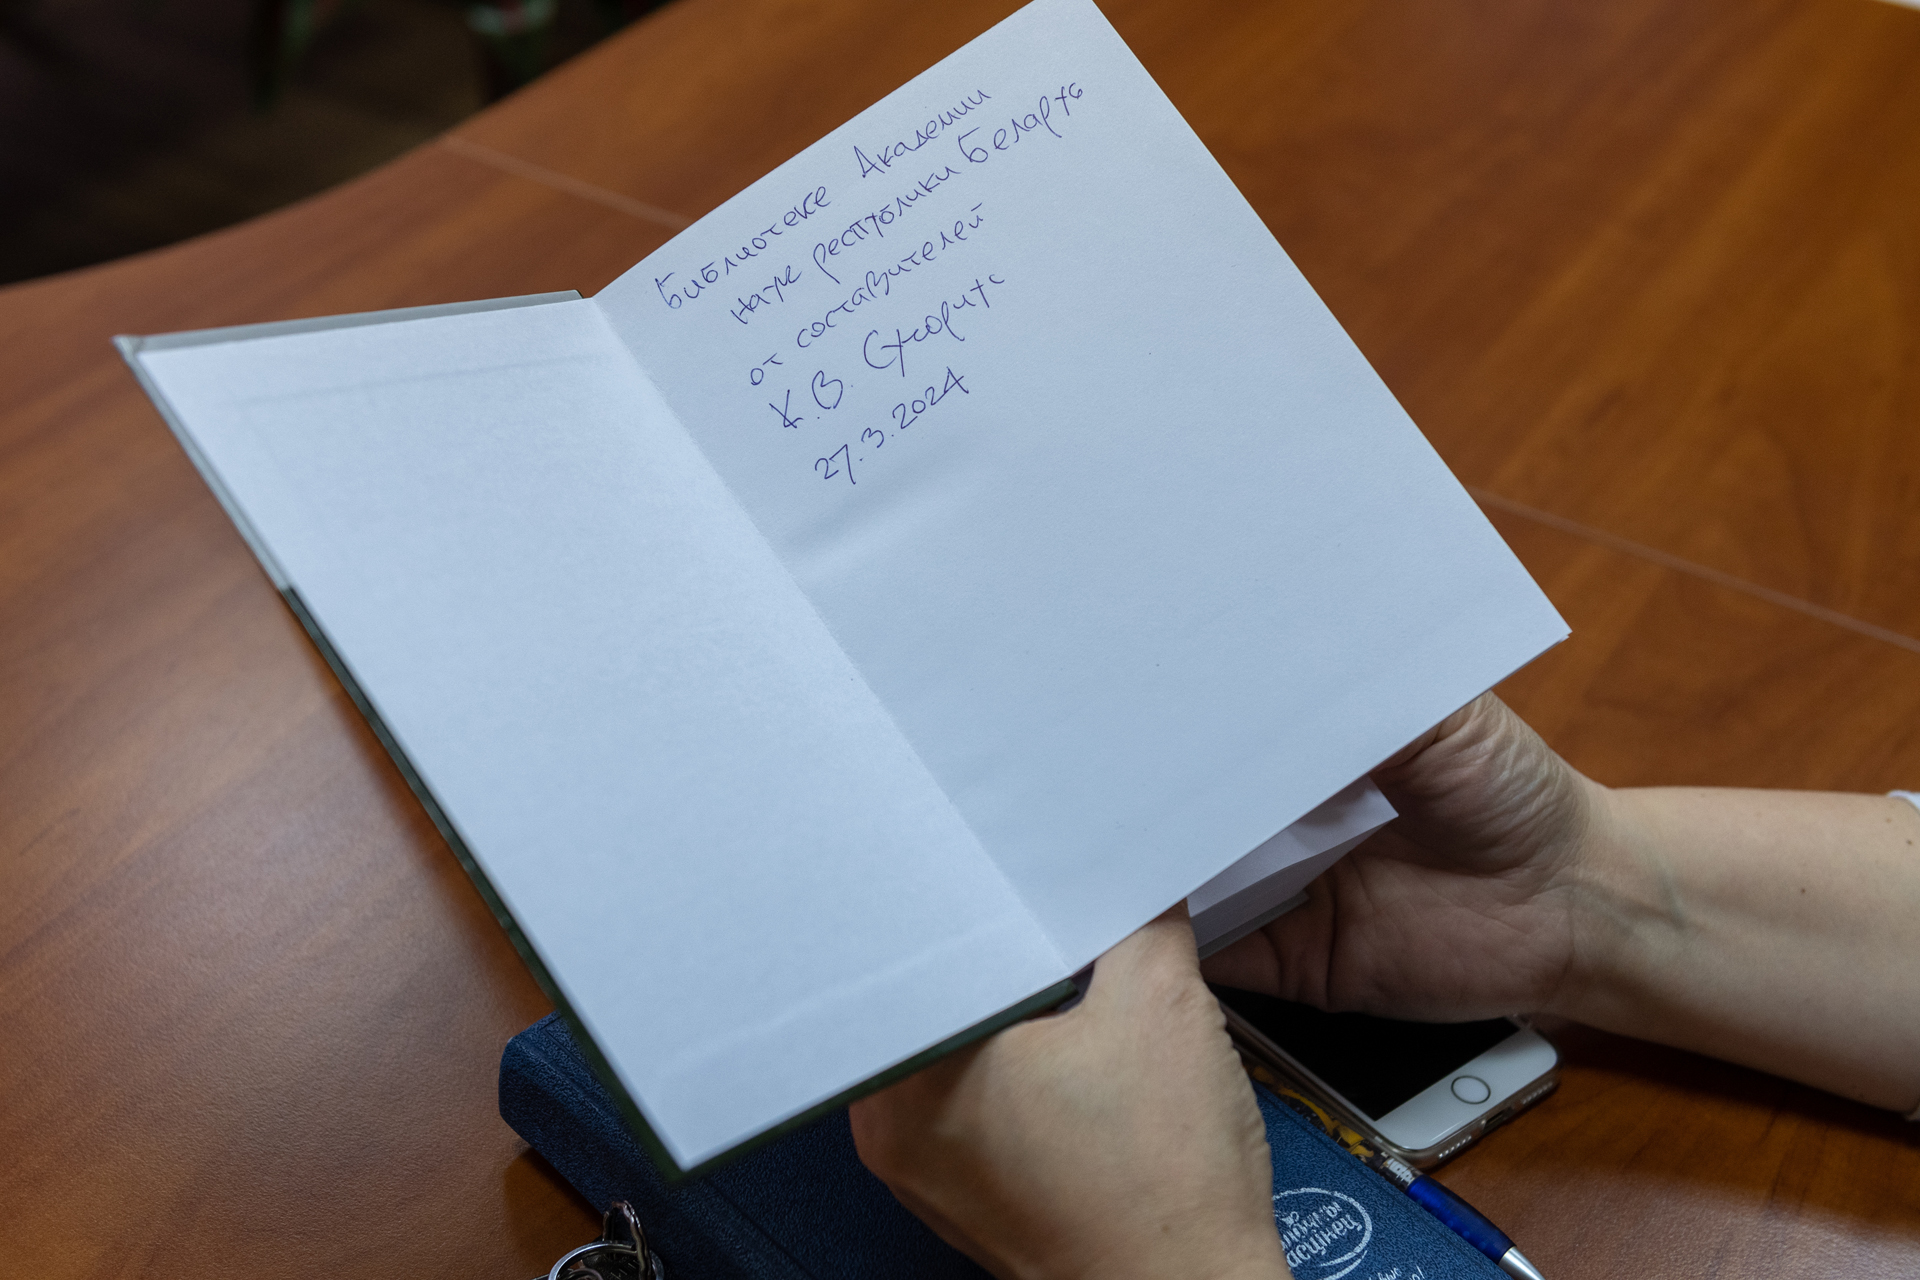 Библиотеке Академии
наук республики Беларусь
от составителей
К.В. Скорих
27.3.2024